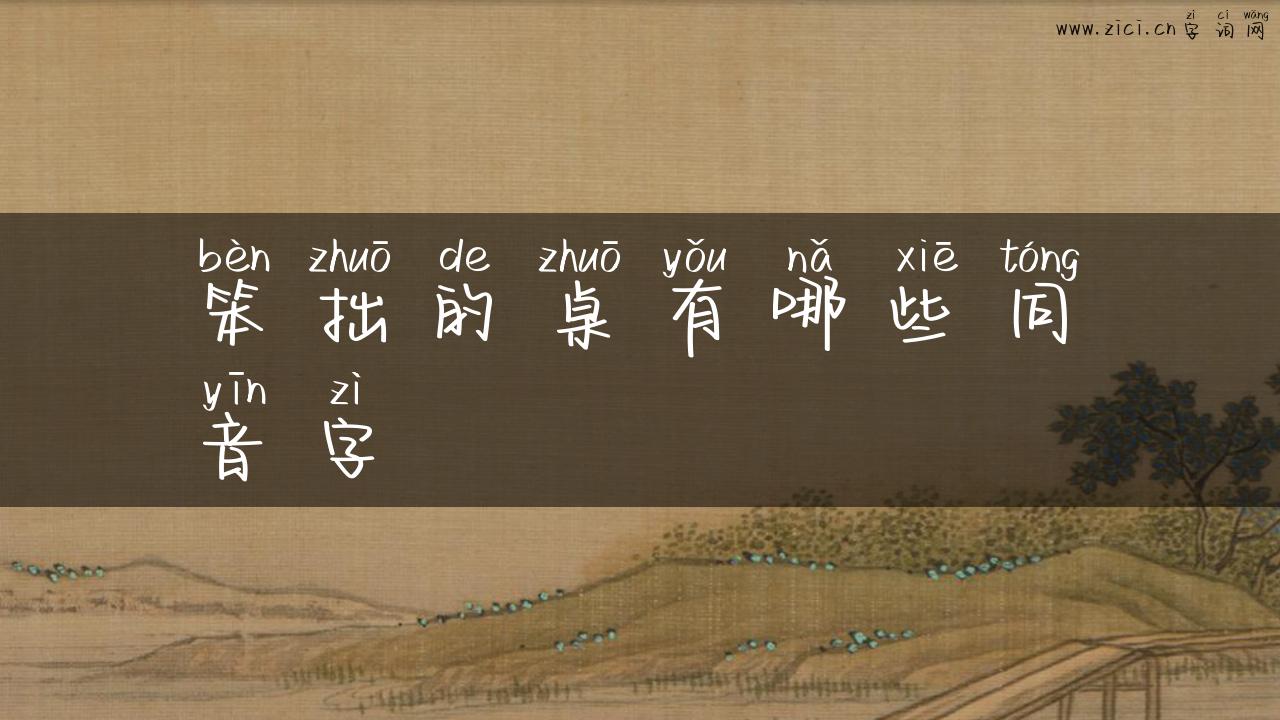 zì cí wǎng
www.zici.cn字词网
bèn zhuō de zhuō yǒu nǎ xiē tóng
笨拙的桌有哪些同
yīn zì
音字